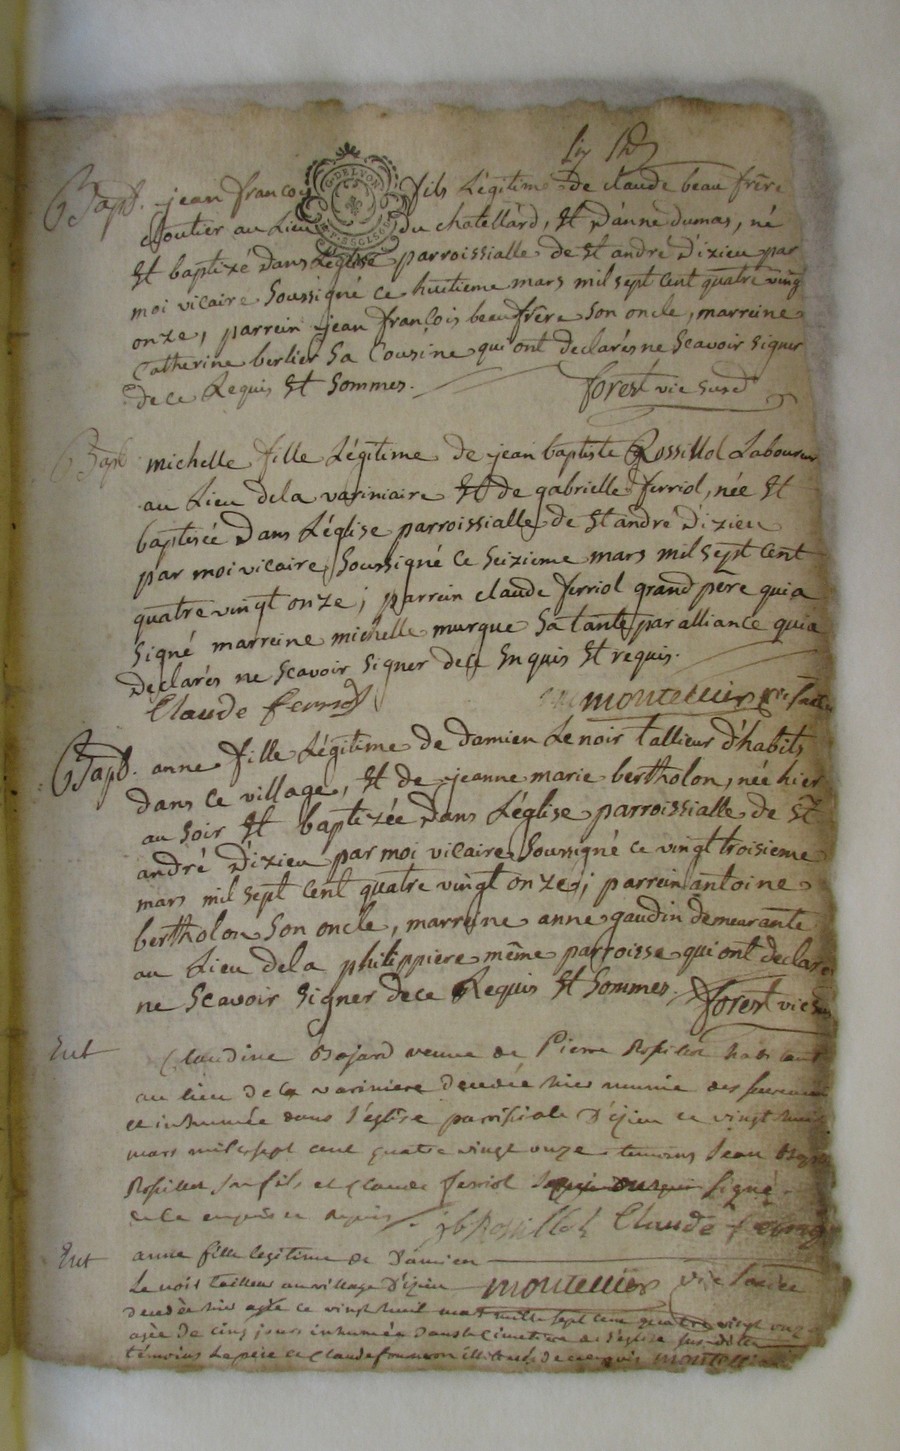 Bapt. jean françois fils Légitime de claude beau frère
cloutier au Lieu du chatellard, Et D'anne dumas, né
Et baptizé Dans L'église parroissialle de St andré D'izieu par
moi vicaire Soussigné ce huitieme mars mil sept Cent quatre ving
onze, parrein jean françois beaufrère Son oncle, marreine
Catherine berlier Sa Cousine qui ont declarés ne Scavoir Signer
de ce Requis Et Sommes.
forest vic
G. DE LYON
Bapt michelle fille Légitime de jean baptiste Rossillol Laboureur
au Lieu dela variniaire Et de gabrielle ferriol, née Et
baptisée Dans L'église parroissialle de St andré D'izieu
par moi vicaire Soussigné Ce Seizieme mars mil sept Cent
quatre vingt onze; parrein claude ferriol grand père qui a
Signé marreine michelle murgue Sa tante par alliance qui a
Declarés ne Scavoir Signer dece Enquis Et requis.
Claude ferriol montellier vic
Bapt. anne fille Légitime de damien Lenoir tallieur d'habits
dans Ce village, Et de jeanne marie bertholon, née hier
au Soir Et baptizée Dans L'église parroissialle de St
andré D'izieu par moi vicaire Soussigné ce vingt troisieme
mars mil sept Cent quatre vingt onze; parrein antoine
bertholon Son oncle, marreine anne gaudin demeurante
au Lieu dela philippiere même parroisse qui ont declarés
ne Scavoir Signer dece Requis Et Sommes. forest vic
Ent Claudine veuve de Pierre habitant
au lieu de la variniere décédée hier munie des
et inhumée dans l'église paroissiale D'izieu ce vingt huit
mars mil sept cent quatre vingt onze temoins Jean
Rossillol son fils et Claude ferriol signé
de ce enquis et requis. jb Rossillol Claude ferriol
Ent anne fille legitime de Damien
Le noir tailleur au village D'izieu montellier vic
décédée hier ce vingt huit mars mille sept cent quatre vingt onze
agée de cinq jours inhumée dans le cimetiere de l'église
témoins Le père et Claude montellier